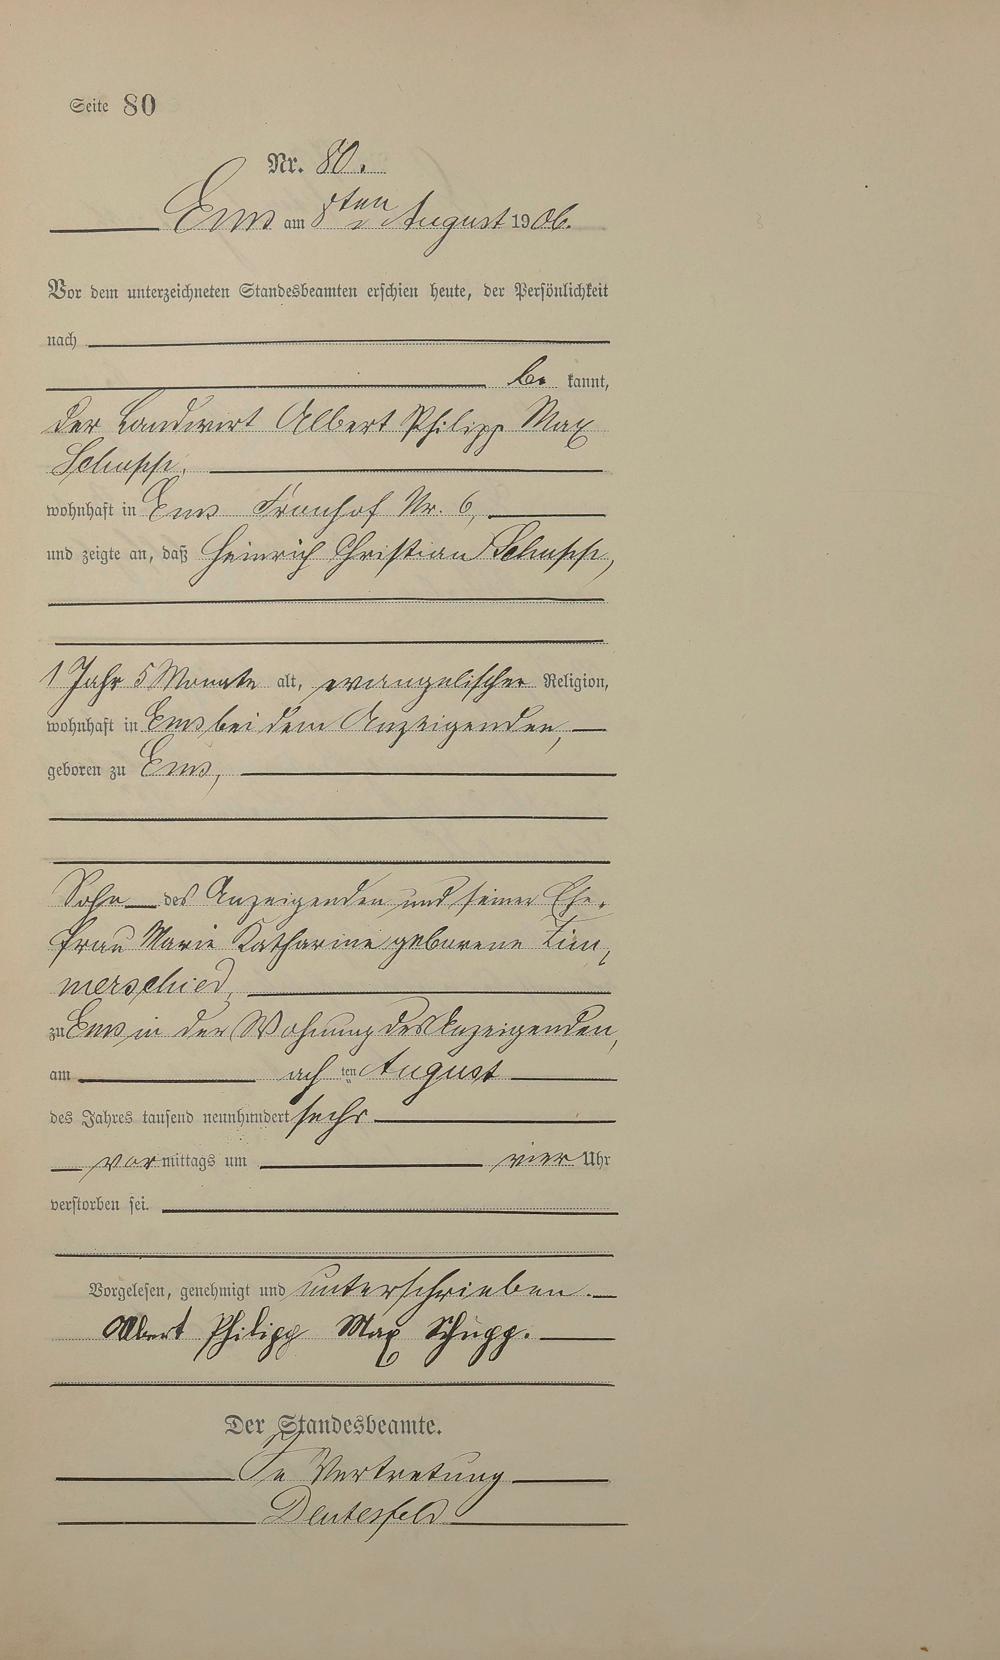 Seite 80
Nr. 80.
Ems am 8ten August 1906.
Vor dem unterzeichneten Standesbeamten erschien heute, der Persönlichkeit
nach
be kannt,
der Landwirt Albert Philipp Max
Schupp,
wohnhaft in Ems Fronhof Nr. 6,
und zeigte an, daß Heinrich Christian Schupp,
1 Jahr 5 Monate alt, evangelischer Religion,
wohnhaft in Ems bei dem Anzeigenden,
geboren zu Ems,
Sohn des Anzeigenden und seiner Ehe-
frau Marie Katharine geborene Zim-
merschied,
zu Ems in der Wohnung des Anzeigenden,
am acht ten August
des Jahres tausend neunhundert sechs
vor mittags um vier Uhr
verstorben sei.
Vorgelesen, genehmigt und unterschrieben.
Albert Philipp Max Schupp.
Der Standesbeamte.
In Vertretung